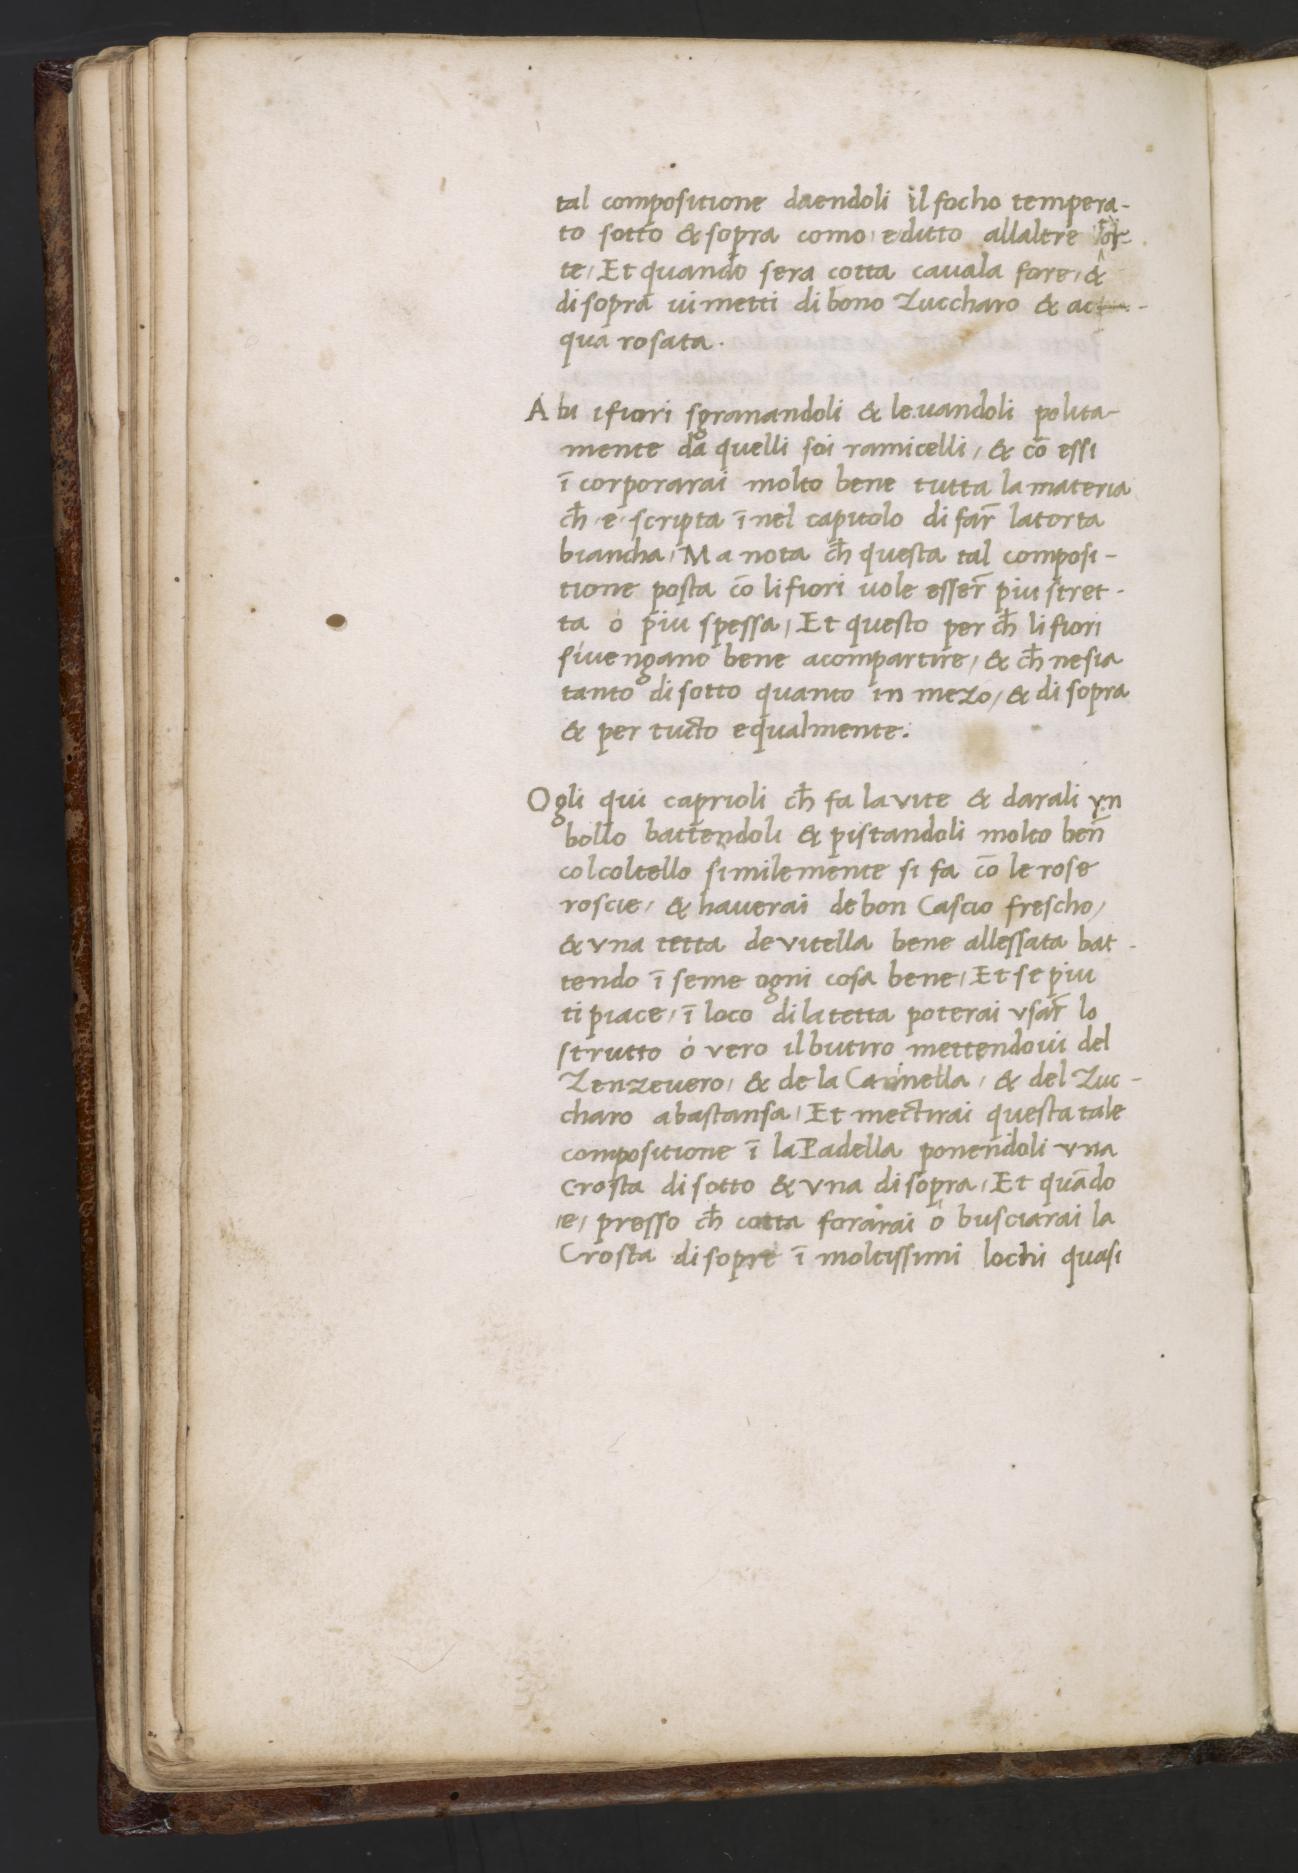 tal compositione daendoli il focho tempera-
to sotto & sopra como e ditto allaltre tor-
te, Et quando sera cotta cavala fore, &
di sopra vi metti di bono Zuccharo & ac-
qua rosata.
Abi i fiori sgranandoli & levandoli polita-
mente da quelli soi ramicelli, & cō essi
ī corporarai molto bene tutta la materia
ch̄ e scripta ī nel capitolo di far̄ la torta
biancha, Ma nota ch̄ questa tal composi-
tione posta cō li fiori vole esser̄ piu stret-
ta ó piu spessa, Et questo per ch̄ li fiori
si vengano bene acompartire, & ch̄ ne sia
tanto di sotto quanto in mezo, & di sopra
& per tucto equalmente.
Ogli qui caprioli ch̄ fa la vite & darali vn
bollo battendoli & pistandoli molto ben̄
col coltello similemente si fa cō le rose
roscie, & haverai de bon Cascio frescho,
& vna tetta de vitella bene allessata bat-
tendo ī seme ogni cosa bene, Et se piu
ti piace, ī loco di la tetta poterai vsar̄ lo
strutto ó vero il butiro mettendovi del
Zenzevero, & de la Cannella, & del Zuc-
charo a bastansa, Et mectirai questa tale
compositione ī la Padella ponendoli vna
crosta di sotto & vna di sopra, Et quādo
e, presso ch̄ cotta forarai ó busciarai la
Crosta di sopre ī moltissimi lochi quasi